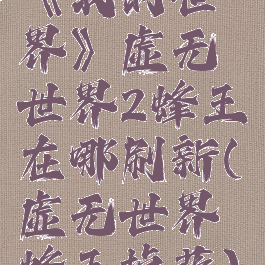 《我的世
界》虚无
世界2蜂王
在哪刷新(
虚无世界